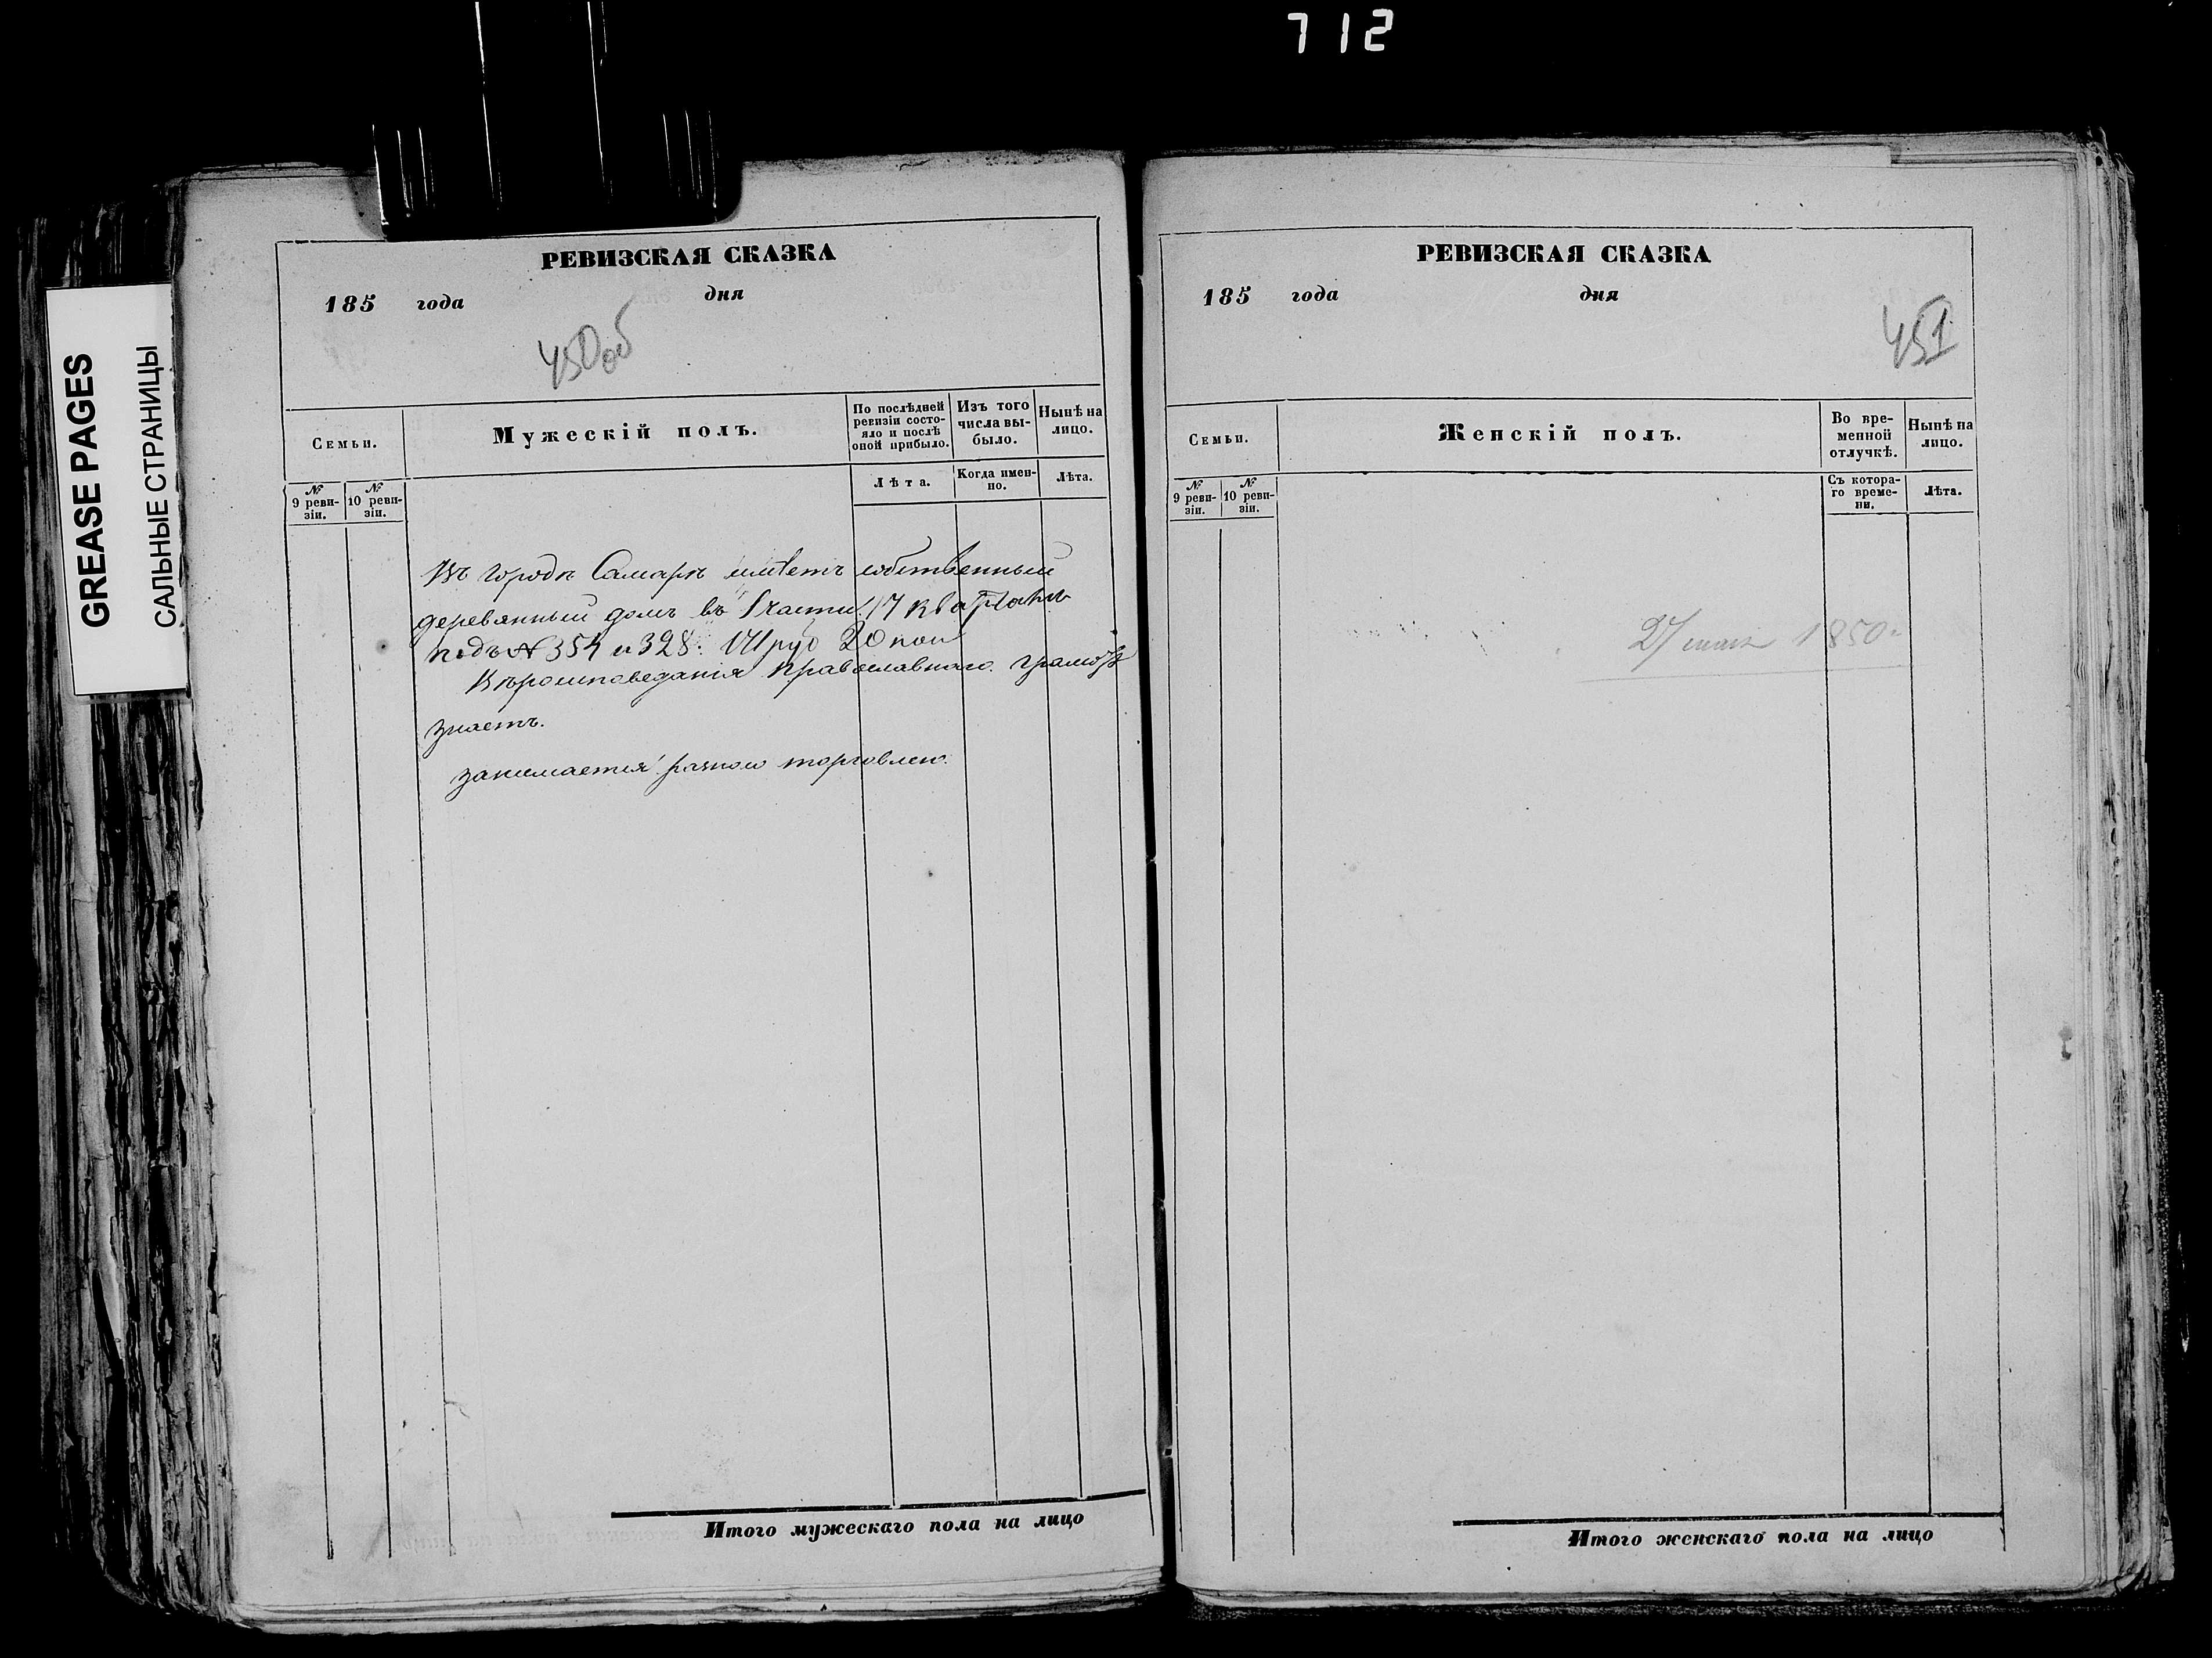 712
GREASE PAGES
САЛЬНЫЕ СТРАНИЦЫ
РЕВИЗСКАЯ СКАЗКА
185 года дня
450об
Семьи.
Мужескій полъ.
По послѣдней ревизіи состояло и послѣ оной прибыло.
Изъ того числа выбыло.
Нынѣ на лицо.
№ 9 ревизіи.
№ 10 ревизіи.
Лѣта.
Когда именно.
Лѣта.
Въ городѣ Самарѣ имѣетъ собственный
деревянный домъ въ 1 части 17 кварталѣ
подъ № 354 и 328: руб 20 коп
Вѣроисповеданія православнаго. грамотѣ
знаетъ.
занимается разною торговлею.
Итого мужескаго пола на лицо
РЕВИЗСКАЯ СКАЗКА
185 года дня
451
Семьи.
Женскій полъ.
Во временной отлучкѣ.
Нынѣ на лицо.
№ 9 ревизіи.
№ 10 ревизіи.
Съ котораго времени.
Лѣта.
27 мая 1850
Итого женскаго пола на лицо